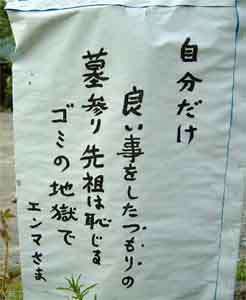 自分だけ
良い事をしたつもりの
墓参り先祖は恥じる
ゴミの地獄で
エンマさま